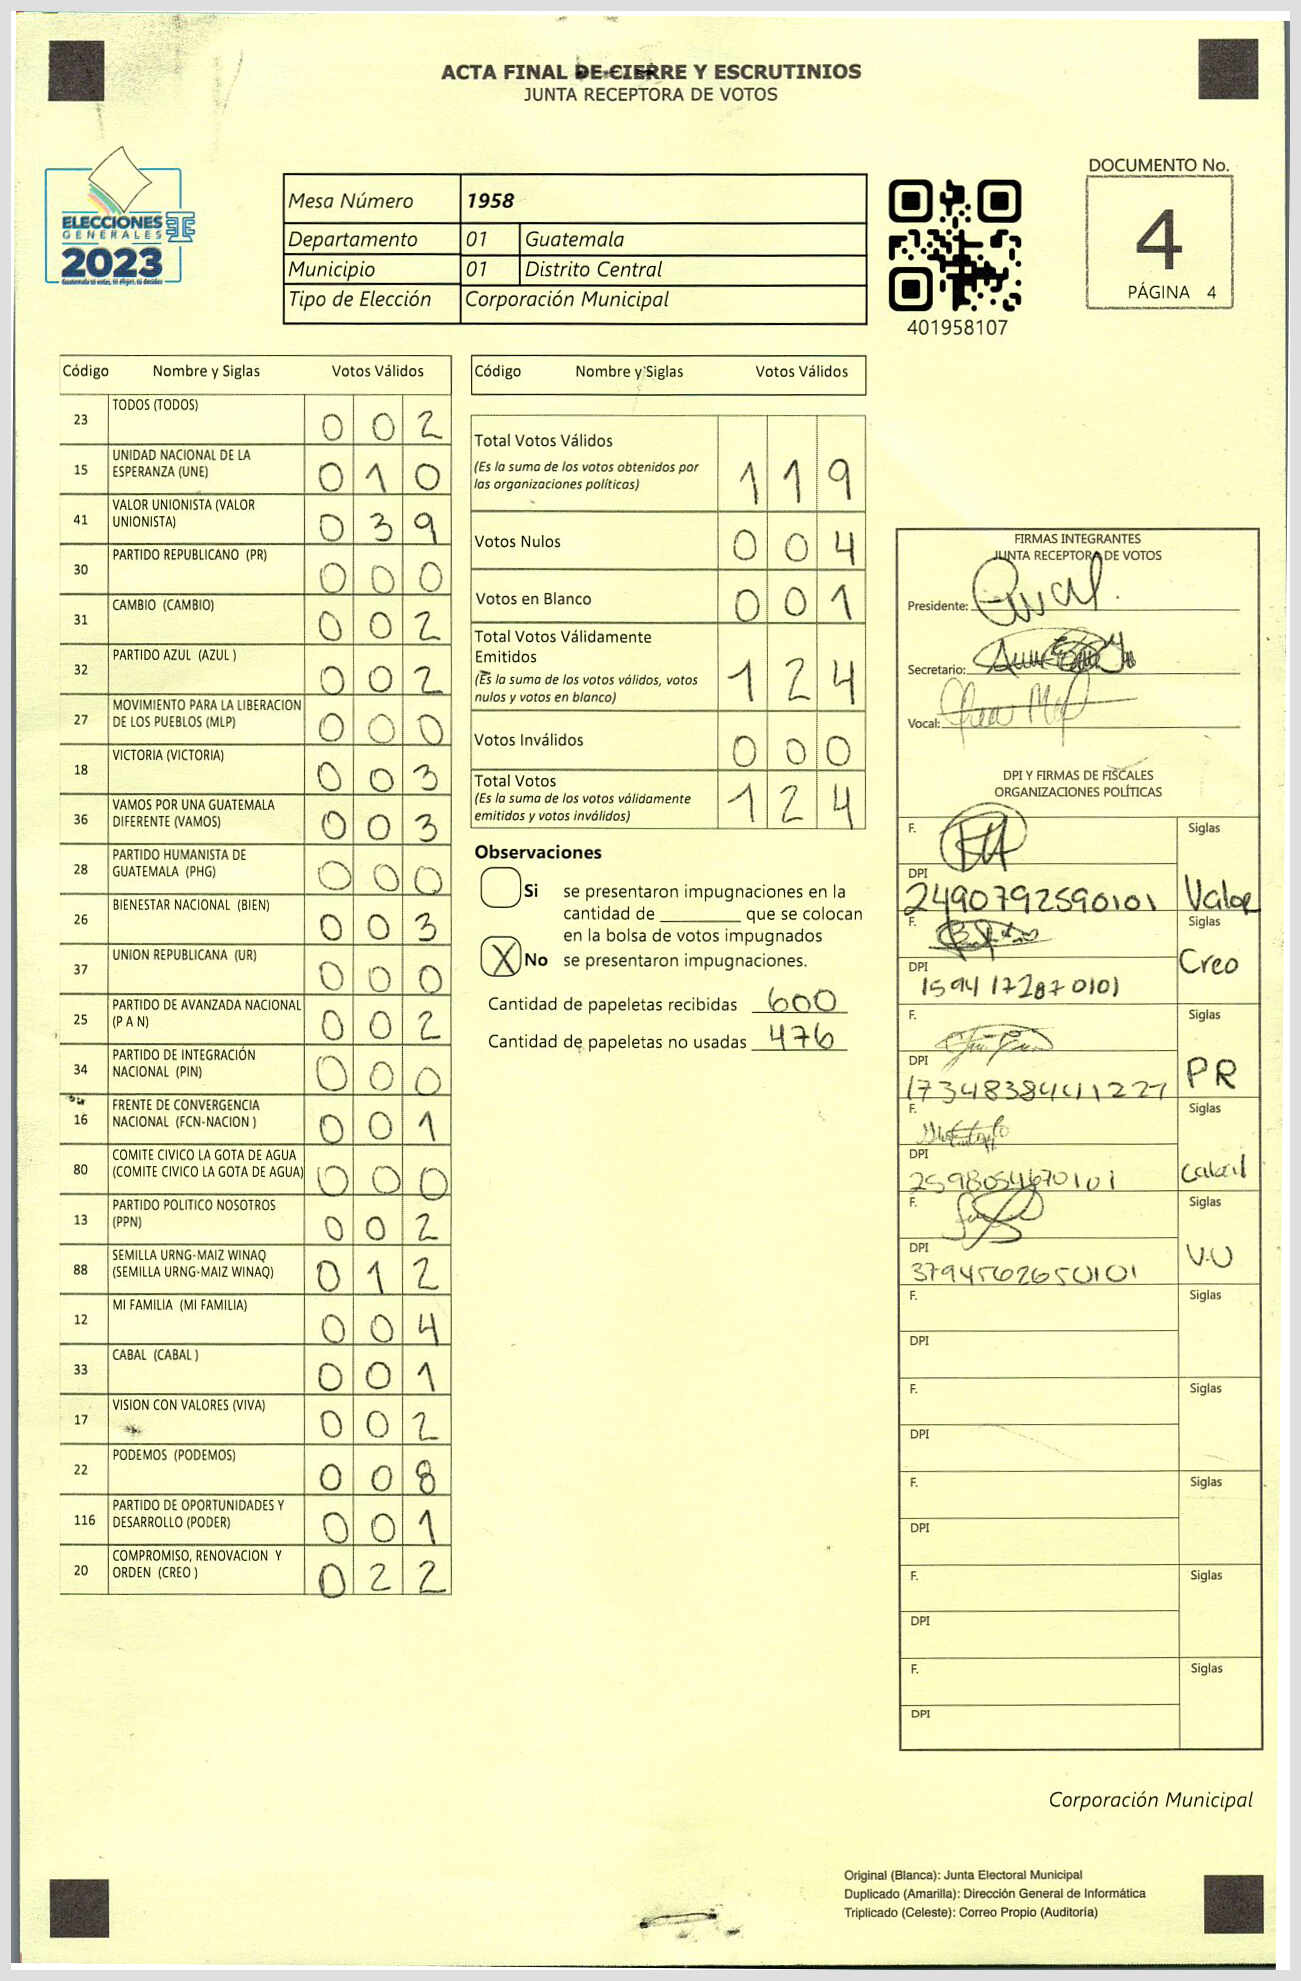 ACTA FINAL DE CIERRE Y ESCRUTINIOS
JUNTA RECEPTORA DE VOTOS
ELECCIONES
GENERALES
2023
Mesa Número 1958
Departamento 01 Guatemala
Municipio 01 Distrito Central
Tipo de Elección Corporación Municipal
401958107
DOCUMENTO No.
4
PÁGINA 4
Código Nombre y Siglas Votos Válidos
23 TODOS (TODOS) 0 0 2
15 UNIDAD NACIONAL DE LA
ESPERANZA (UNE) 0 1 0
41 VALOR UNIONISTA (VALOR
UNIONISTA) 0 3 9
30 PARTIDO REPUBLICANO (PR) 0 0 0
31 CAMBIO (CAMBIO) 0 0 2
32 PARTIDO AZUL (AZUL ) 0 0 2
27 MOVIMIENTO PARA LA LIBERACION
DE LOS PUEBLOS (MLP) 0 0 0
18 VICTORIA (VICTORIA) 0 0 3
36 VAMOS POR UNA GUATEMALA
DIFERENTE (VAMOS) 0 0 3
28 PARTIDO HUMANISTA DE
GUATEMALA (PHG) 0 0 0
26 BIENESTAR NACIONAL (BIEN) 0 0 3
37 UNION REPUBLICANA (UR) 0 0 0
25 PARTIDO DE AVANZADA NACIONAL
(P A N) 0 0 2
34 PARTIDO DE INTEGRACIÓN
NACIONAL (PIN) 0 0 0
16 FRENTE DE CONVERGENCIA
NACIONAL (FCN-NACION ) 0 0 1
80 COMITE CIVICO LA GOTA DE AGUA
(COMITE CIVICO LA GOTA DE AGUA) 0 0 0
13 PARTIDO POLITICO NOSOTROS
(PPN) 0 0 2
88 SEMILLA URNG-MAIZ WINAQ
(SEMILLA URNG-MAIZ WINAQ) 0 1 2
12 MI FAMILIA (MI FAMILIA) 0 0 4
33 CABAL (CABAL ) 0 0 1
17 VISION CON VALORES (VIVA) 0 0 2
22 PODEMOS (PODEMOS) 0 0 8
116 PARTIDO DE OPORTUNIDADES Y
DESARROLLO (PODER) 0 0 1
20 COMPROMISO, RENOVACION Y
ORDEN (CREO ) 0 2 2
Código Nombre y Siglas Votos Válidos
Total Votos Válidos
(Es la suma de los votos obtenidos por
las organizaciones políticas) 1 1 9
Votos Nulos 0 0 4
Votos en Blanco 0 0 1
Total Votos Válidamente
Emitidos
(Es la suma de los votos válidos, votos
nulos y votos en blanco) 1 2 4
Votos Inválidos 0 0 0
Total Votos
(Es la suma de los votos válidamente
emitidos y votos inválidos) 1 2 4
Observaciones
Si se presentaron impugnaciones en la
cantidad de ________ que se colocan
en la bolsa de votos impugnados
X No se presentaron impugnaciones.
Cantidad de papeletas recibidas 600
Cantidad de papeletas no usadas 476
FIRMAS INTEGRANTES
JUNTA RECEPTORA DE VOTOS
Presidente:
Secretario:
Vocal:
DPI Y FIRMAS DE FISCALES
ORGANIZACIONES POLÍTICAS
F. Siglas
DPI
2490792590101 Valor
F. Siglas
Creo
DPI
1594172870101
F. Siglas
DPI PR
1734838441227
F. Siglas
DPI
2598054670101 Cabal
F. Siglas
DPI V.U
3794562650101
F. Siglas
DPI
F. Siglas
DPI
F. Siglas
DPI
F. Siglas
DPI
F. Siglas
DPI
Corporación Municipal
Original (Blanca): Junta Electoral Municipal
Duplicado (Amarilla): Dirección General de Informática
Triplicado (Celeste): Correo Propio (Auditoría)